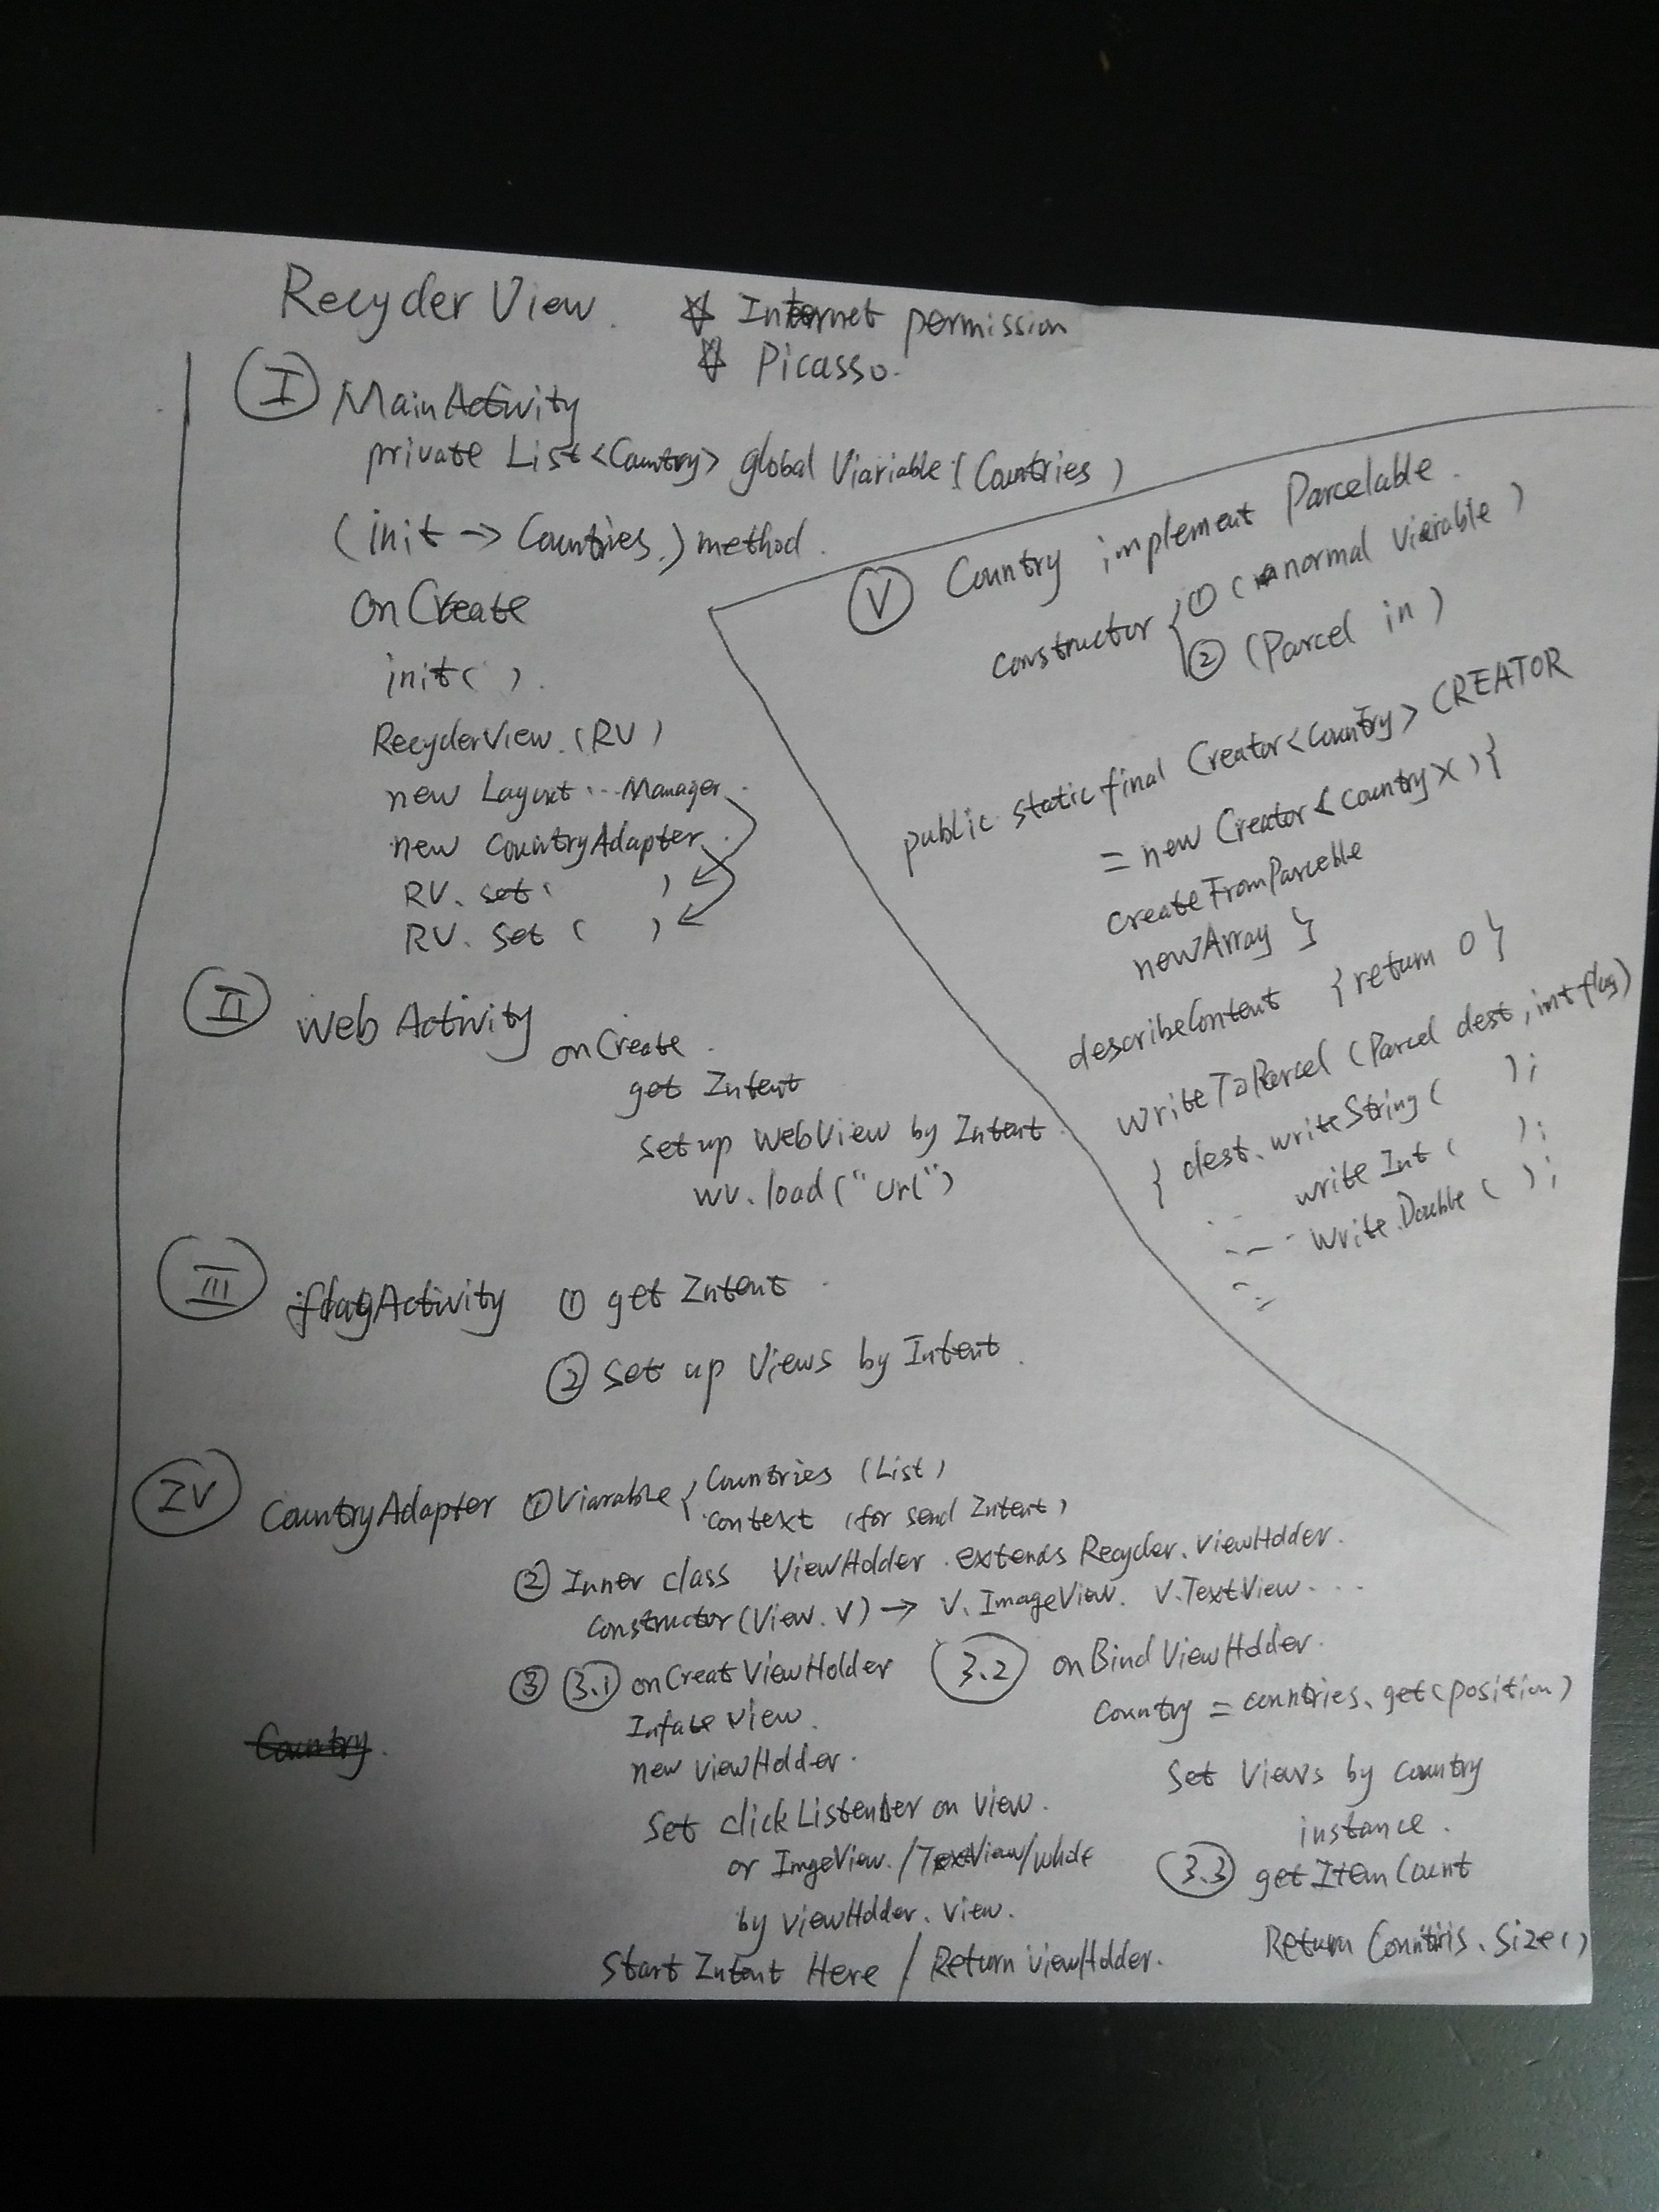 Recycler View.
☆ Internet permission
☆ Picasso.
I MainActivity
private List<Country> global Viariable (Countries)
(init → Countries.) method.
onCreate
init( ).
RecyclerView. (RV)
new Layout ... Manager.
new CountryAdapter.
RV. set( )
RV. set ( )
II Web Activity
onCreate.
get Intent
set up WebView by Intent.
wv. load("url")
III flagActivity ① get Intent.
② Set up Views by Intent.
IV CountryAdapter ① Viarable { Countries (List)
Context (for send Intent)
② Inner class ViewHolder. extends Recycler. ViewHolder.
Constructor (View. V) → V. ImageView. V. TextView. ...
③ 3.1 onCreatViewHolder
Infate View.
new ViewHolder.
Set clickListenber on View.
or ImgeView. / TextView/whole
by viewHolder. View.
Start Intent Here / Return ViewHolder.
3.2 onBind ViewHolder.
Country = countries. get(position)
Set Views by country
instance.
3.3 getItemCount
Return Countiris. Size()
Country.
V Country implement Parcelable.
constructor { ① (normal Viariable)
② (Parcel in)
public static final Creator<Country> CREATOR
= new Creator<country>( ){
createFromParceble
newArray }
describeContent {return 0}
WriteToParcel (Parcel dest, int flag)
{ dest. writeString ( );
... write Int ( );
... write Double ( );